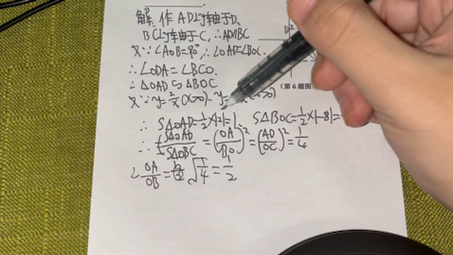 解: 作AD⊥y轴于D,
BC⊥y轴于C, ∴AD∥BC
又∵∠AOB=90°, ∴∠OAD=∠BOC.
∴∠ODA=∠BCO.
∴△OAD∽△BOC
又∵y=2/x(x>0)
(第6题图)
∴ S△OAD=1/2×|2|=1, S△BOC=1/2×|-8|=
∴ S△OAD/S△OBC=(OA/BO)²=(AD/OC)²=1/4
∴OA/OB=√1/4=1/2